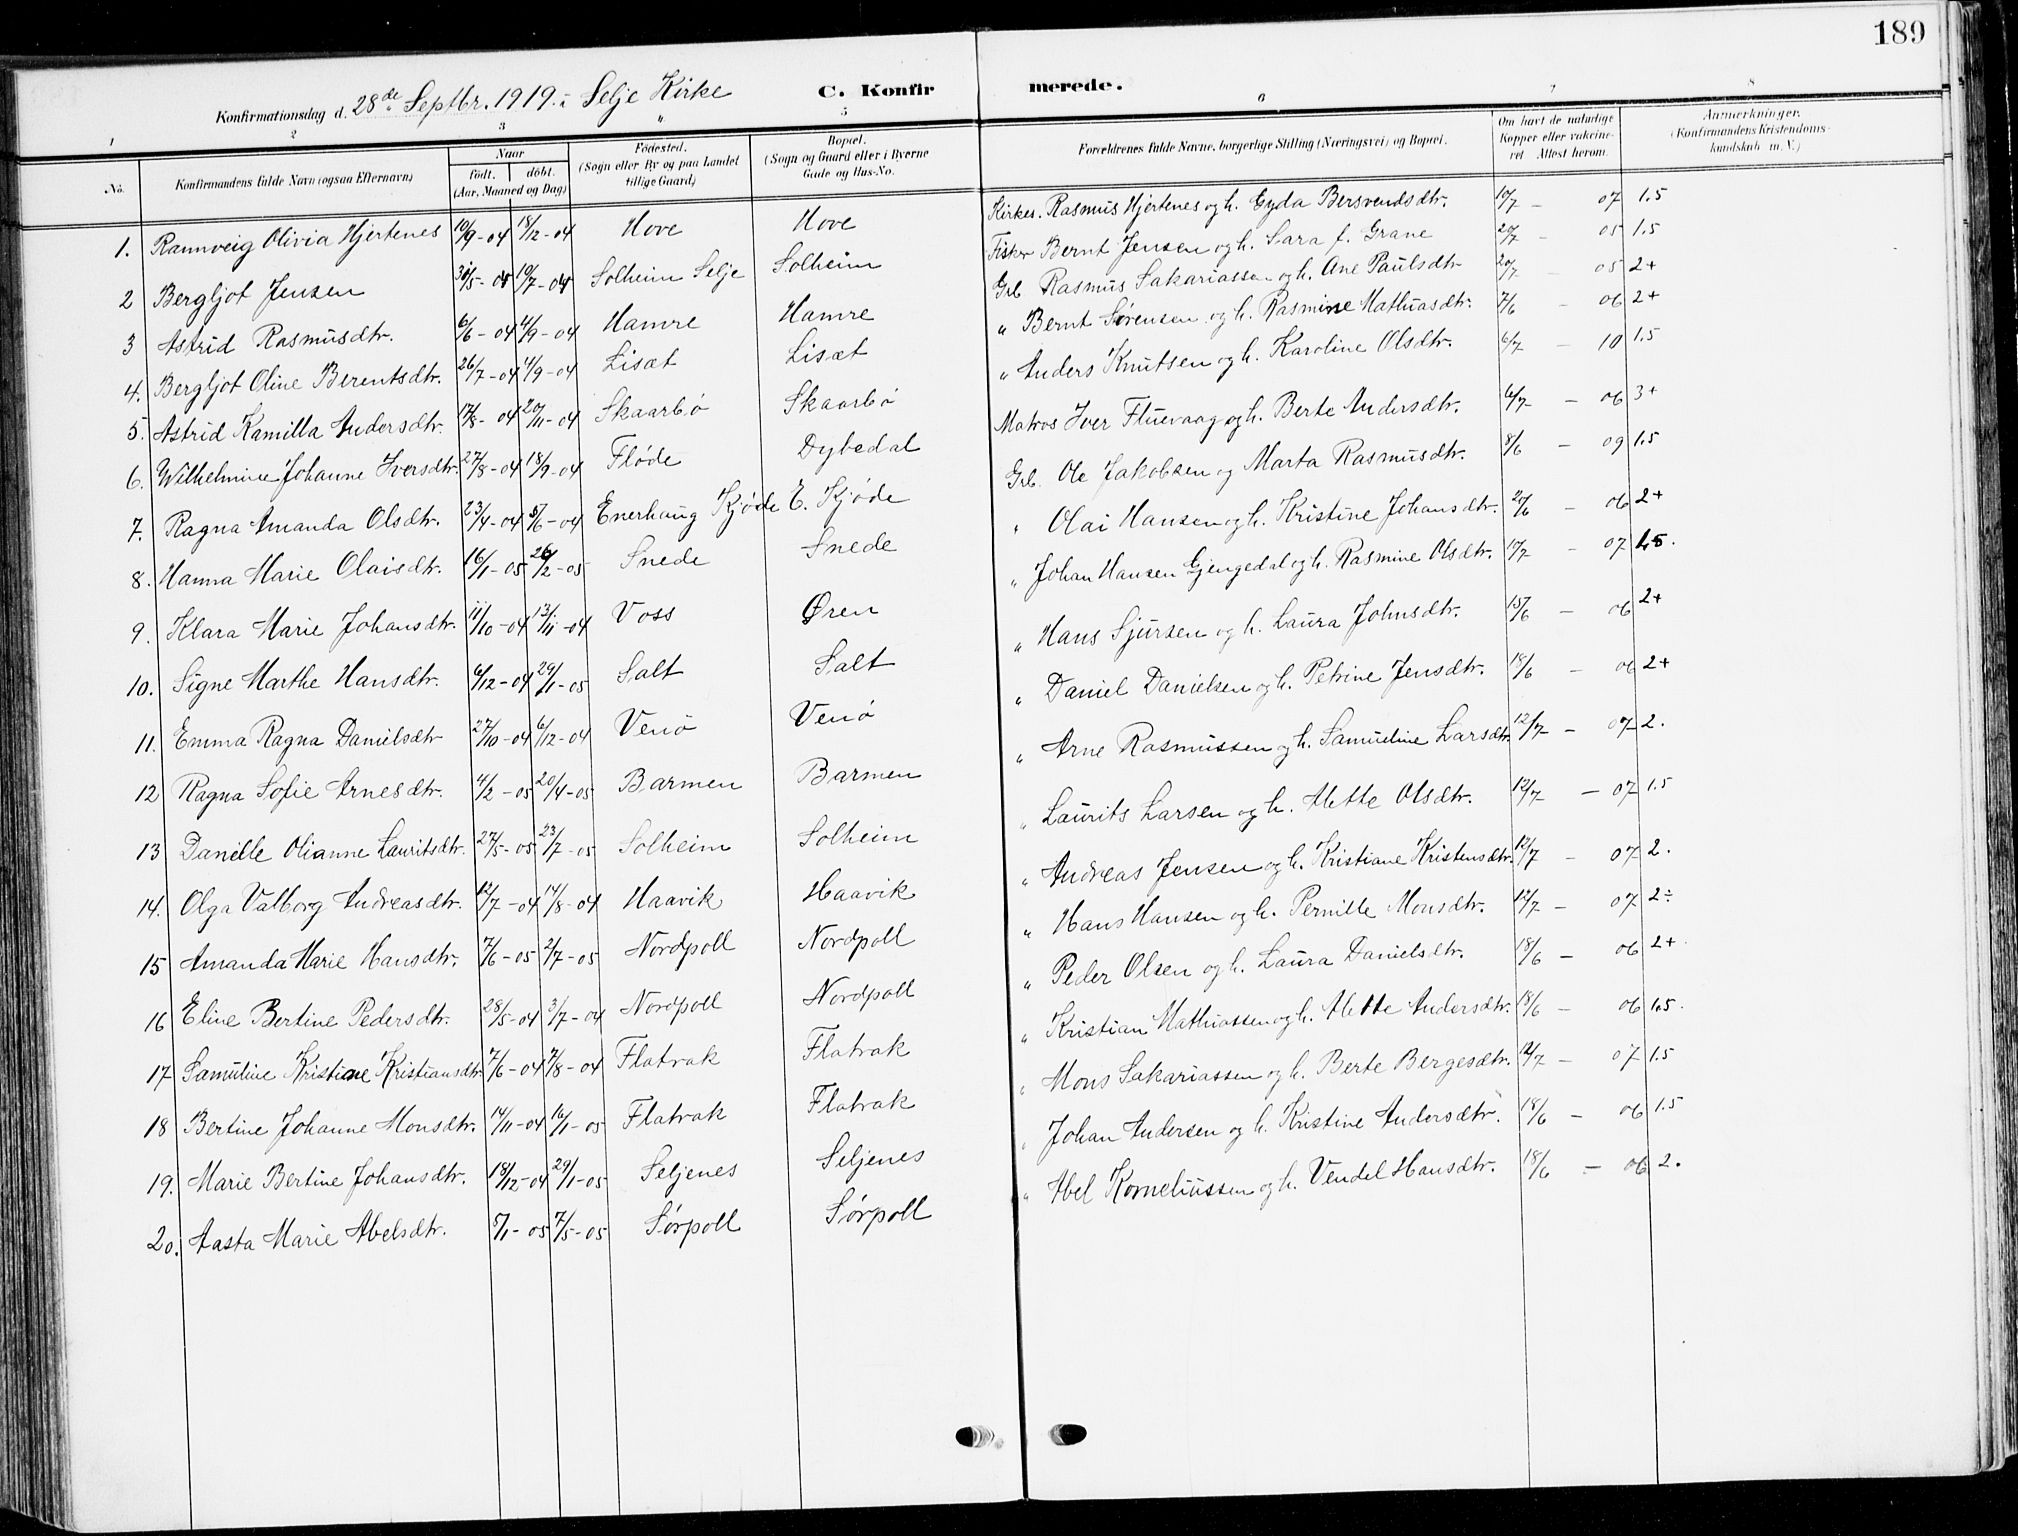 189
Konfirmationsdag d. 28de Septbr. 1919. i Selje Kirke C. Konfir merede.
1 2 3 " 5 6 7 8
No. Konfirmandens fulde Navn (ogsaa Efternavn) Naar født. døbt. (Aar, Maaned og Dag) Fødested. (Sogn eller By og paa Landet tillige Gaard) Bopæl. (Sogn og Gaard eller i Byerne Gade og Hus-No. Forældrenes fulde Navne, borgerlige Stilling (Næringsvei) og Bopæl. Om havt de naturlige Kopper eller vakcineret. Attest herom. Anmerkninger. (Konfirmandens Kristendomskundskab m. V.)
1. Rannveig Olivia Hjertenes 10/9-04 18/12-04 Hove Hove Kirkes. Rasmus Hjertenes og h. Gyda Bersvendsdtr. 10/7 - 07 1.5
2 Bergljot Jensen 30/5-04 10/7-04 Solheim Selje Solheim Fisker Bernt Jensen og h. Sara f. Grane 20/7 - 05 1.5
3 Astrid Rasmusdtr. 6/6-04 4/9-04 Hamre Hamre Grb Rasmus Sakariassen og h. Ane Paulsdtr 20/7 - 05 2+
4. Bergljot Oline Berentsdtr. 26/7-04 4/9-04 Lisæt Lisæt " Bernt Sørensen og h. Rasmine Mathiasdtr. 7/6 - 06 2+
5. Astrid Kamilla Andersdtr. 17/8-04 20/11-04 Skaarbø Skaarbø " Anders Knutsen og h. Karoline Olsdtr. 6/7 - 10 1.5
6. Wilhelmine Johanne Iversdtr. 27/8-04 18/9-04 Fløde Dybedal Matros Iver Fluevaag og h. Berte Andersdtr. 6/7 - 06 3+
7. Ragna Amanda Olsdtr. 23/4-04 5/6-04 Enerhaug Kjøde E. Kjøde Grb. Ole Jakobsen og Marta Rasmusdtr. 8/6 - 09 1.5
8. Hanna Marie Olaisdtr. 16/1-05 26/2-05 Snede Snede " Olai Hansen og h. Kristine Johansdtr. 20/6 - 06 2+
9. Klara Marie Johansdtr. 11/10-04 13/11-04 Voss Øren " Johan Hansen Gjengedal og h. Rasmine Olsdtr. 10/7 - 07 1.5.
10. Signe Marthe Hansdtr. 6/12-04 29/1-05 Salt Salt " Hans Sjursen og h. Laura Johnsdtr. 15/6 - 06 2+
11. Emma Ragna Danielsdtr 27/10-04 6/12-04 Venø Venø " Daniel Danielsen og h. Petrine Jensdtr. 18/6 - 06 2+
12 Ragna Sofie Arnesdtr. 4/2-05 20/4-05 Barmen Barmen " Arne Rasmussen og h. Samueline Larsdtr. 12/7 - 07 2.
13 Danielle Olianne Lauritsdtr. 27/5-05 23/7-05 Solheim Solheim " Laurits Larsen og h. Alette Olsdtr. 12/7 - 07 1.5
14. Olga Valborg Andreasdtr. 12/7-04 14/8-04 Haavik Haavik " Andreas Jensen og h. Kristiane Kristensdtr. 12/7 - 07 2.
15 Amanda Marie Hansdtr. 7/6-05 2/7-05 Nordpoll Nordpoll " Hans Hansen og h. Pernille Monsdtr. 12/7 - 07 2÷
16 Eline Bertine Pedersdtr. 28/5-04 3/7-04 Nordpoll Nordpoll " Peder Olsen og h. Laura Danielsdtr. 18/6 - 06 2+.
17 Samuline Kristine Kristiansdtr 7/6-04 7/8-04 Flatrak Flatrak " Kristian Mathiassen og h. Alette Andersdtr. 18/6 - 06 1.5.
18 Bertine Johanne Monsdtr. 14/11-04 16/1-05 Flatrak Flatrak " Mons Sakariassen og h. Berte Bergesdtr. 12/7 - 07 1.5
19. Marie Bertine Johansdtr. 18/12-04 29/1-05 Seljenes Seljenes " Johan Andersen og h. Kristine Andersdtr. 18/6 - 06 1.5
20. Aasta Marie Abelsdtr. 5/1-05 7/5-05 Sørpoll Sørpoll " Abel Korneliussen og h. Vendel Hansdtr. 18/6 - 06 2.